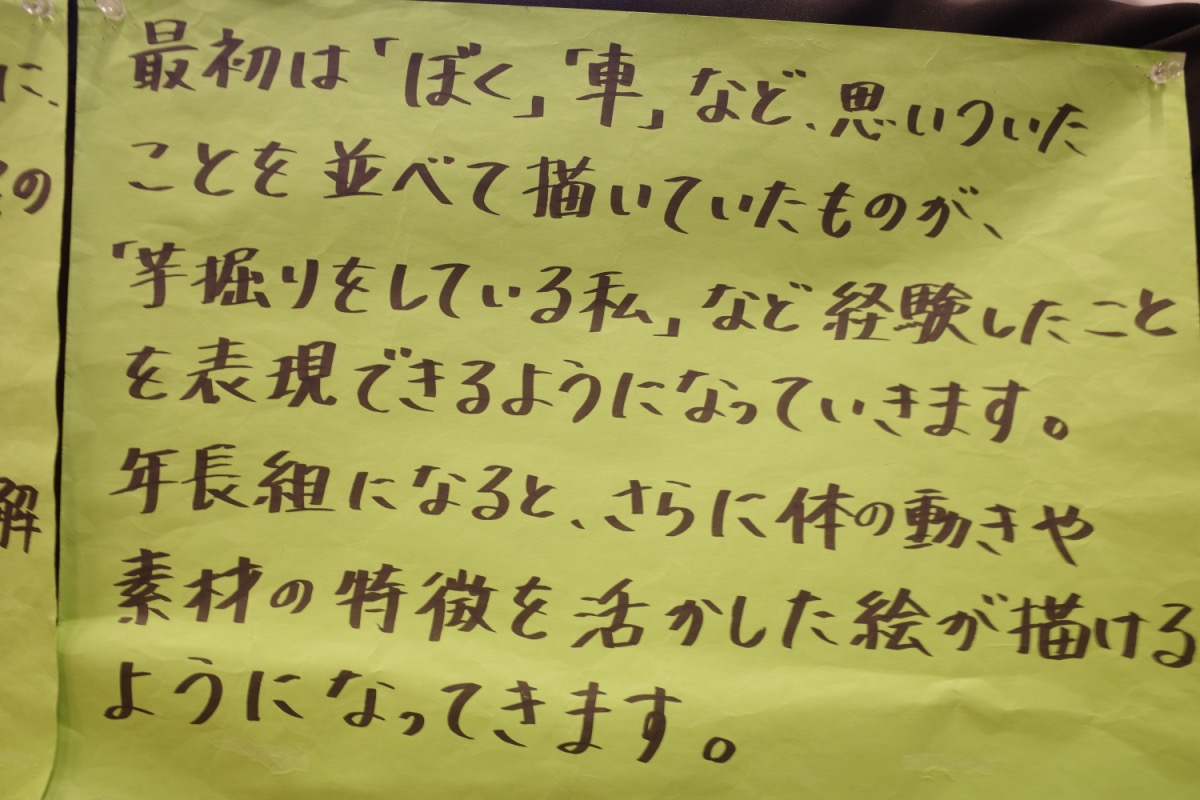 最初は「ぼく」「車」など、思いついた
ことを並べて描いていたものが、
「芋掘りをしている私」など経験したこと
を表現できるようになっていきます。
年長組になると、さらに体の動きや
素材の特徴を活かした絵が描ける
ようになってきます。
に、
の
解